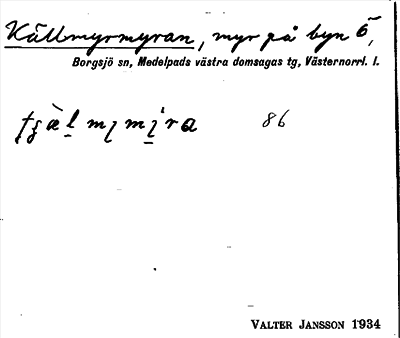 Källmyrmyran, myr på byn Ö,
Borgsjö sn, Medelpads västra domsagas tg, Västernorrl. l.
86
VALTER JANSSON 1934